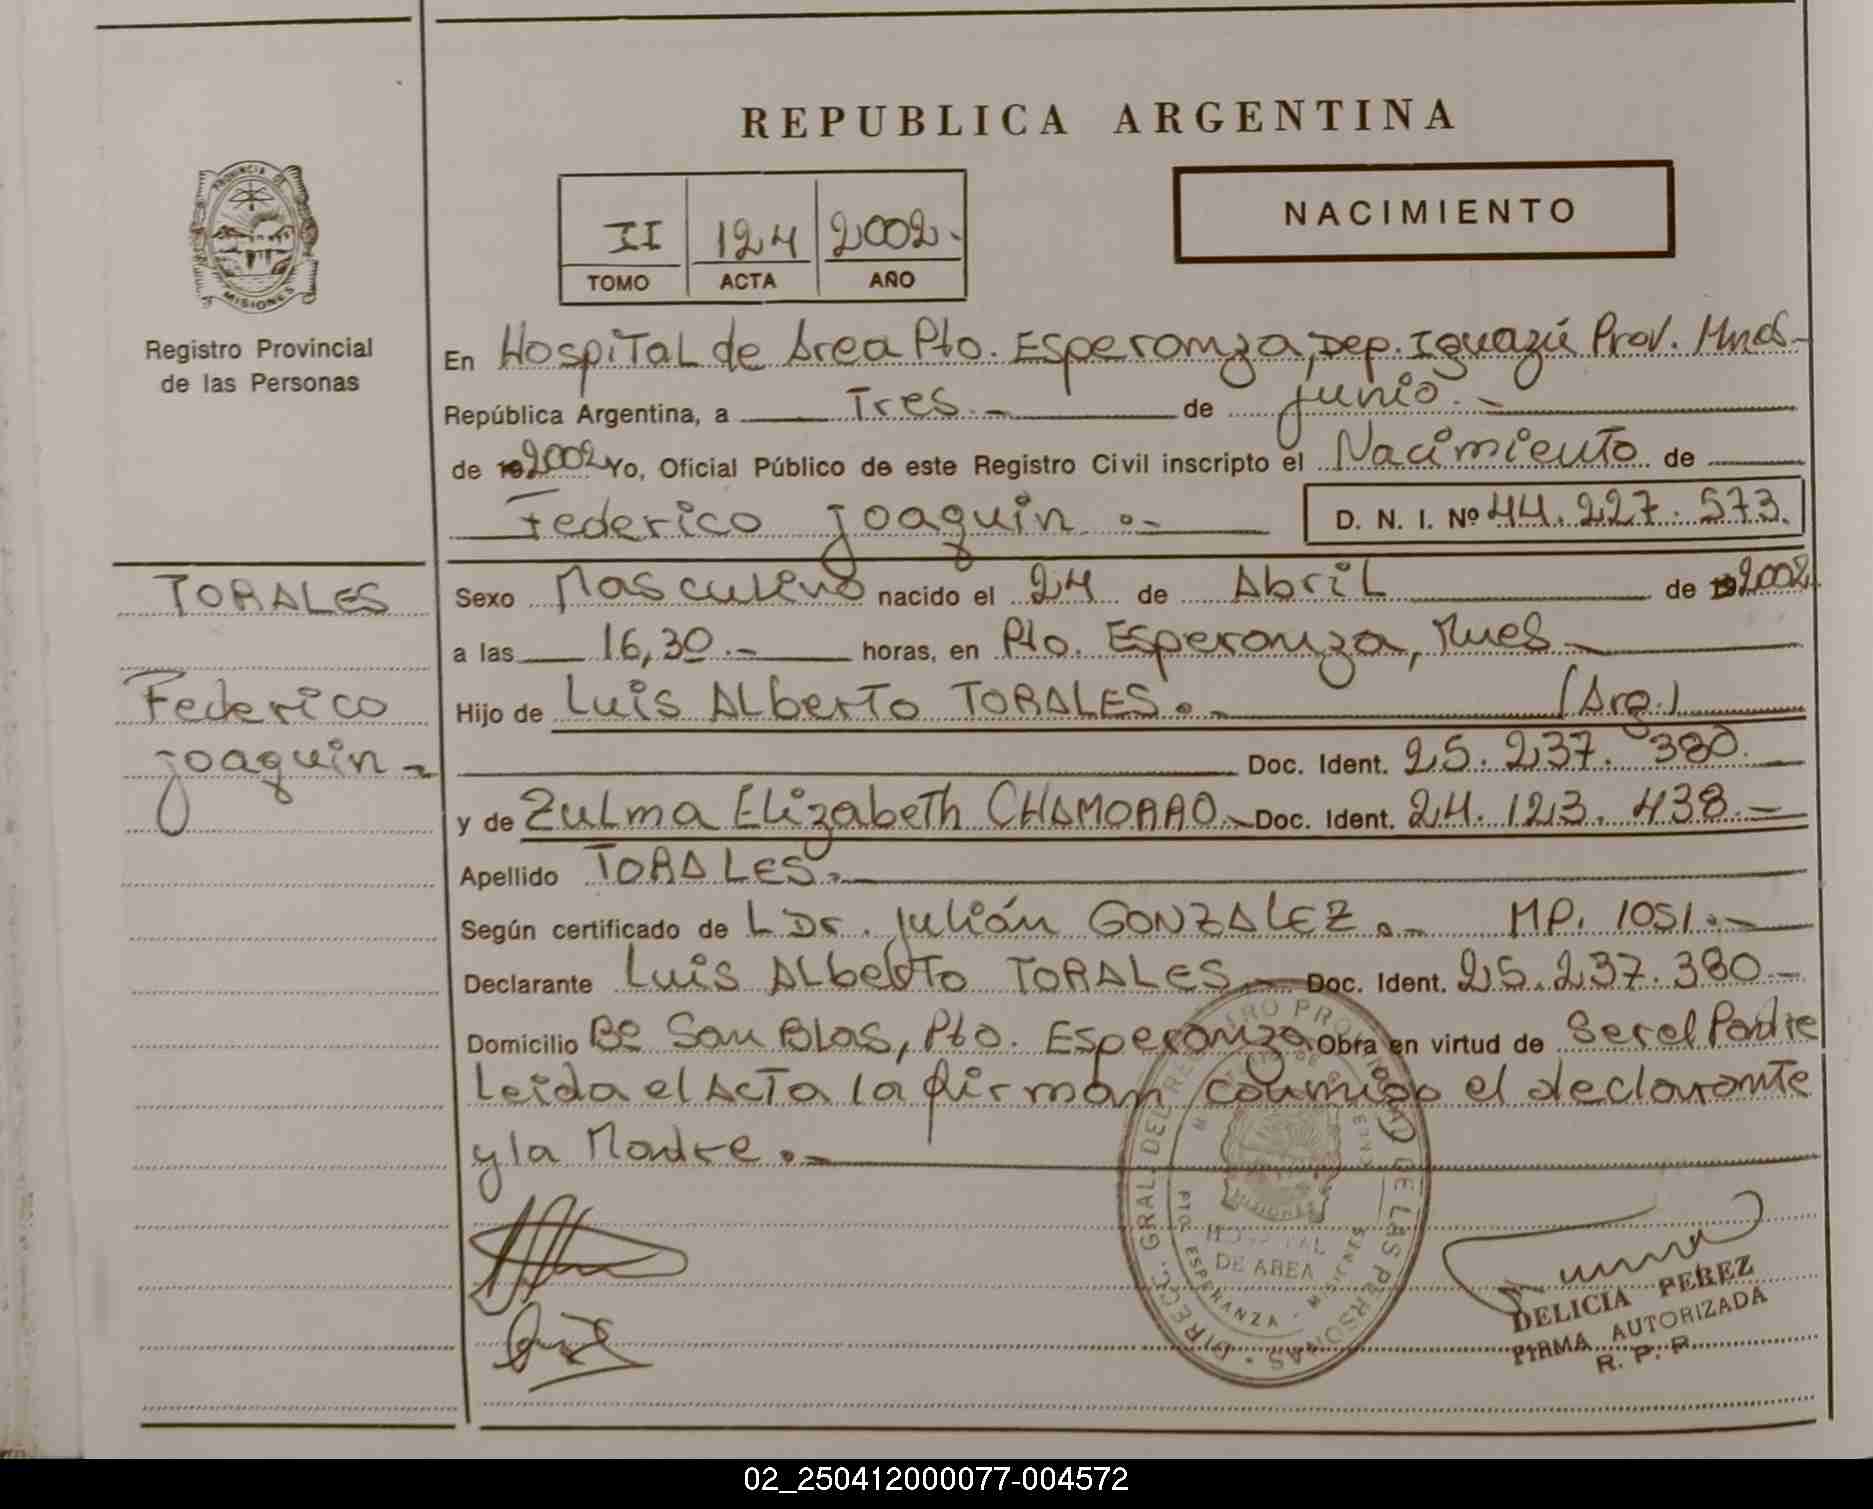 REPUBLICA ARGENTINA
NACIMIENTO
II 124 2002.-
TOMO ACTA AÑO
PROVINCIA DE
MISIONES
Registro Provincial
de las Personas
En Hospital de Area Pto. Esperanza, Dep. Iguazú Prov. Mnes-
República Argentina, a Tres.- de junio.-
de 192002 Yo, Oficial Público de este Registro Civil inscripto el Nacimiento de
Federico joaquin.- D. N. I. Nº 44.227.573.
TORALES
Federico
joaquin-
Sexo Masculino nacido el 24 de Abril de 192002
a las 16,30.- horas, en Pto. Esperanza, Mnes-
Hijo de Luis ALberto TORALES.- (Arg.)
Doc. Ident. 25.237.380.
y de Zulma Elizabeth CHAMORRO- Doc. Ident. 24.123.438.-
Apellido TORALES.-
Según certificado de L Dr. julián GONZALEZ.- MP. 1051.-
Declarante Luis ALberto TORALES- Doc. Ident. 25.237.380-
Domicilio Bº San BLas, Pto. Esperanza Obra en virtud de Ser el Padre
Leida el Acta la firman conmigo el declarante
y la Madre.-
DIRECC. GRAL. DEL REGISTRO PROVINCIAL DE LAS PERSONAS
MISIONES
HOSPITAL
DE AREA
PTO. ESPERANZA - MISIONES
DELICIA PEREZ
FIRMA AUTORIZADA
R. P. P.
02_250412000077-004572